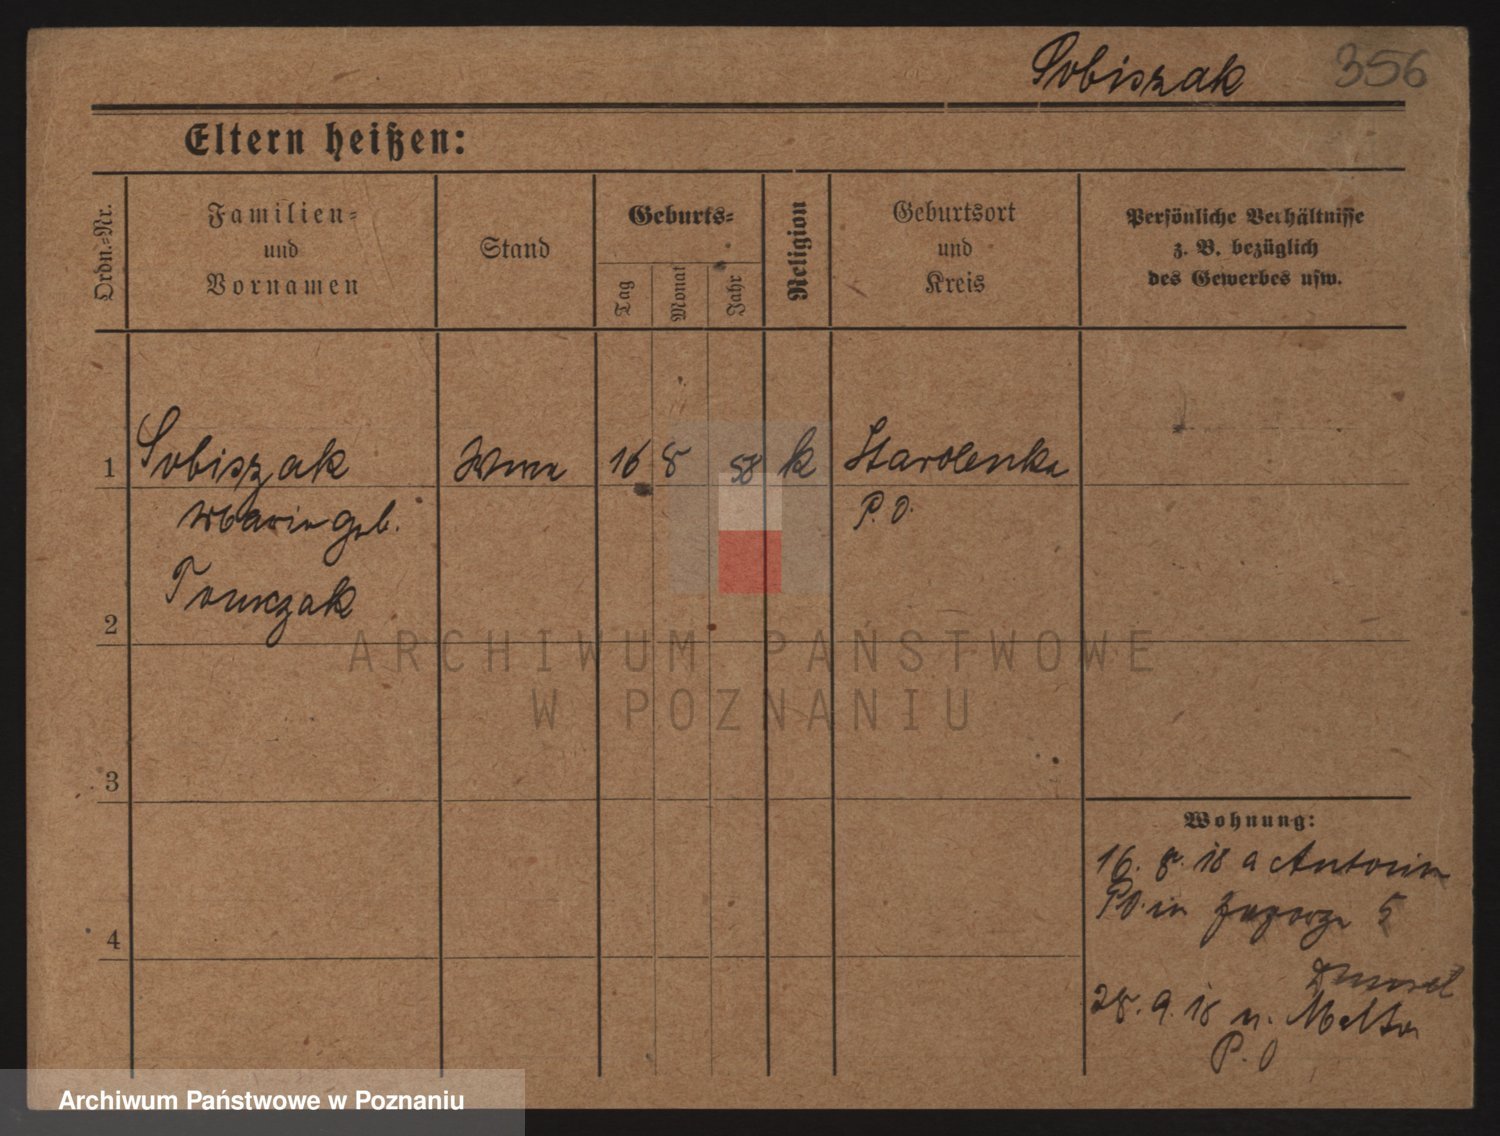 Sobiszak 356
Eltern heißen:
Ordn.=Nr.
Familien=
und
Vornamen
Stand
Geburts=
Tag
Monat
Jahr
Religion
Geburtsort
und
Kreis
Persönliche Verhältnisse
z. B. bezüglich
des Gewerbes usw.
1 Sobiszak Wwe 16 8 58 k Starolenka
Marie geb. P. O.
Tomczak
2
3
4
Wohnung:
16. 8. 18 a Antonin
PO. in 5
28. 9. 18 n.
P. O
ARCHIWUM PAŃSTWOWE
W POZNANIU
Archiwum Państwowe w Poznaniu